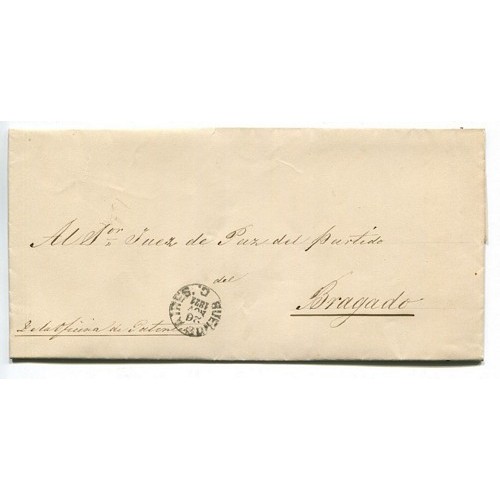 Al Sor. Juez de Paz del Partido
del
Bragado
De la Oficina de Patentes
BUENOS AIRES
26
NOV